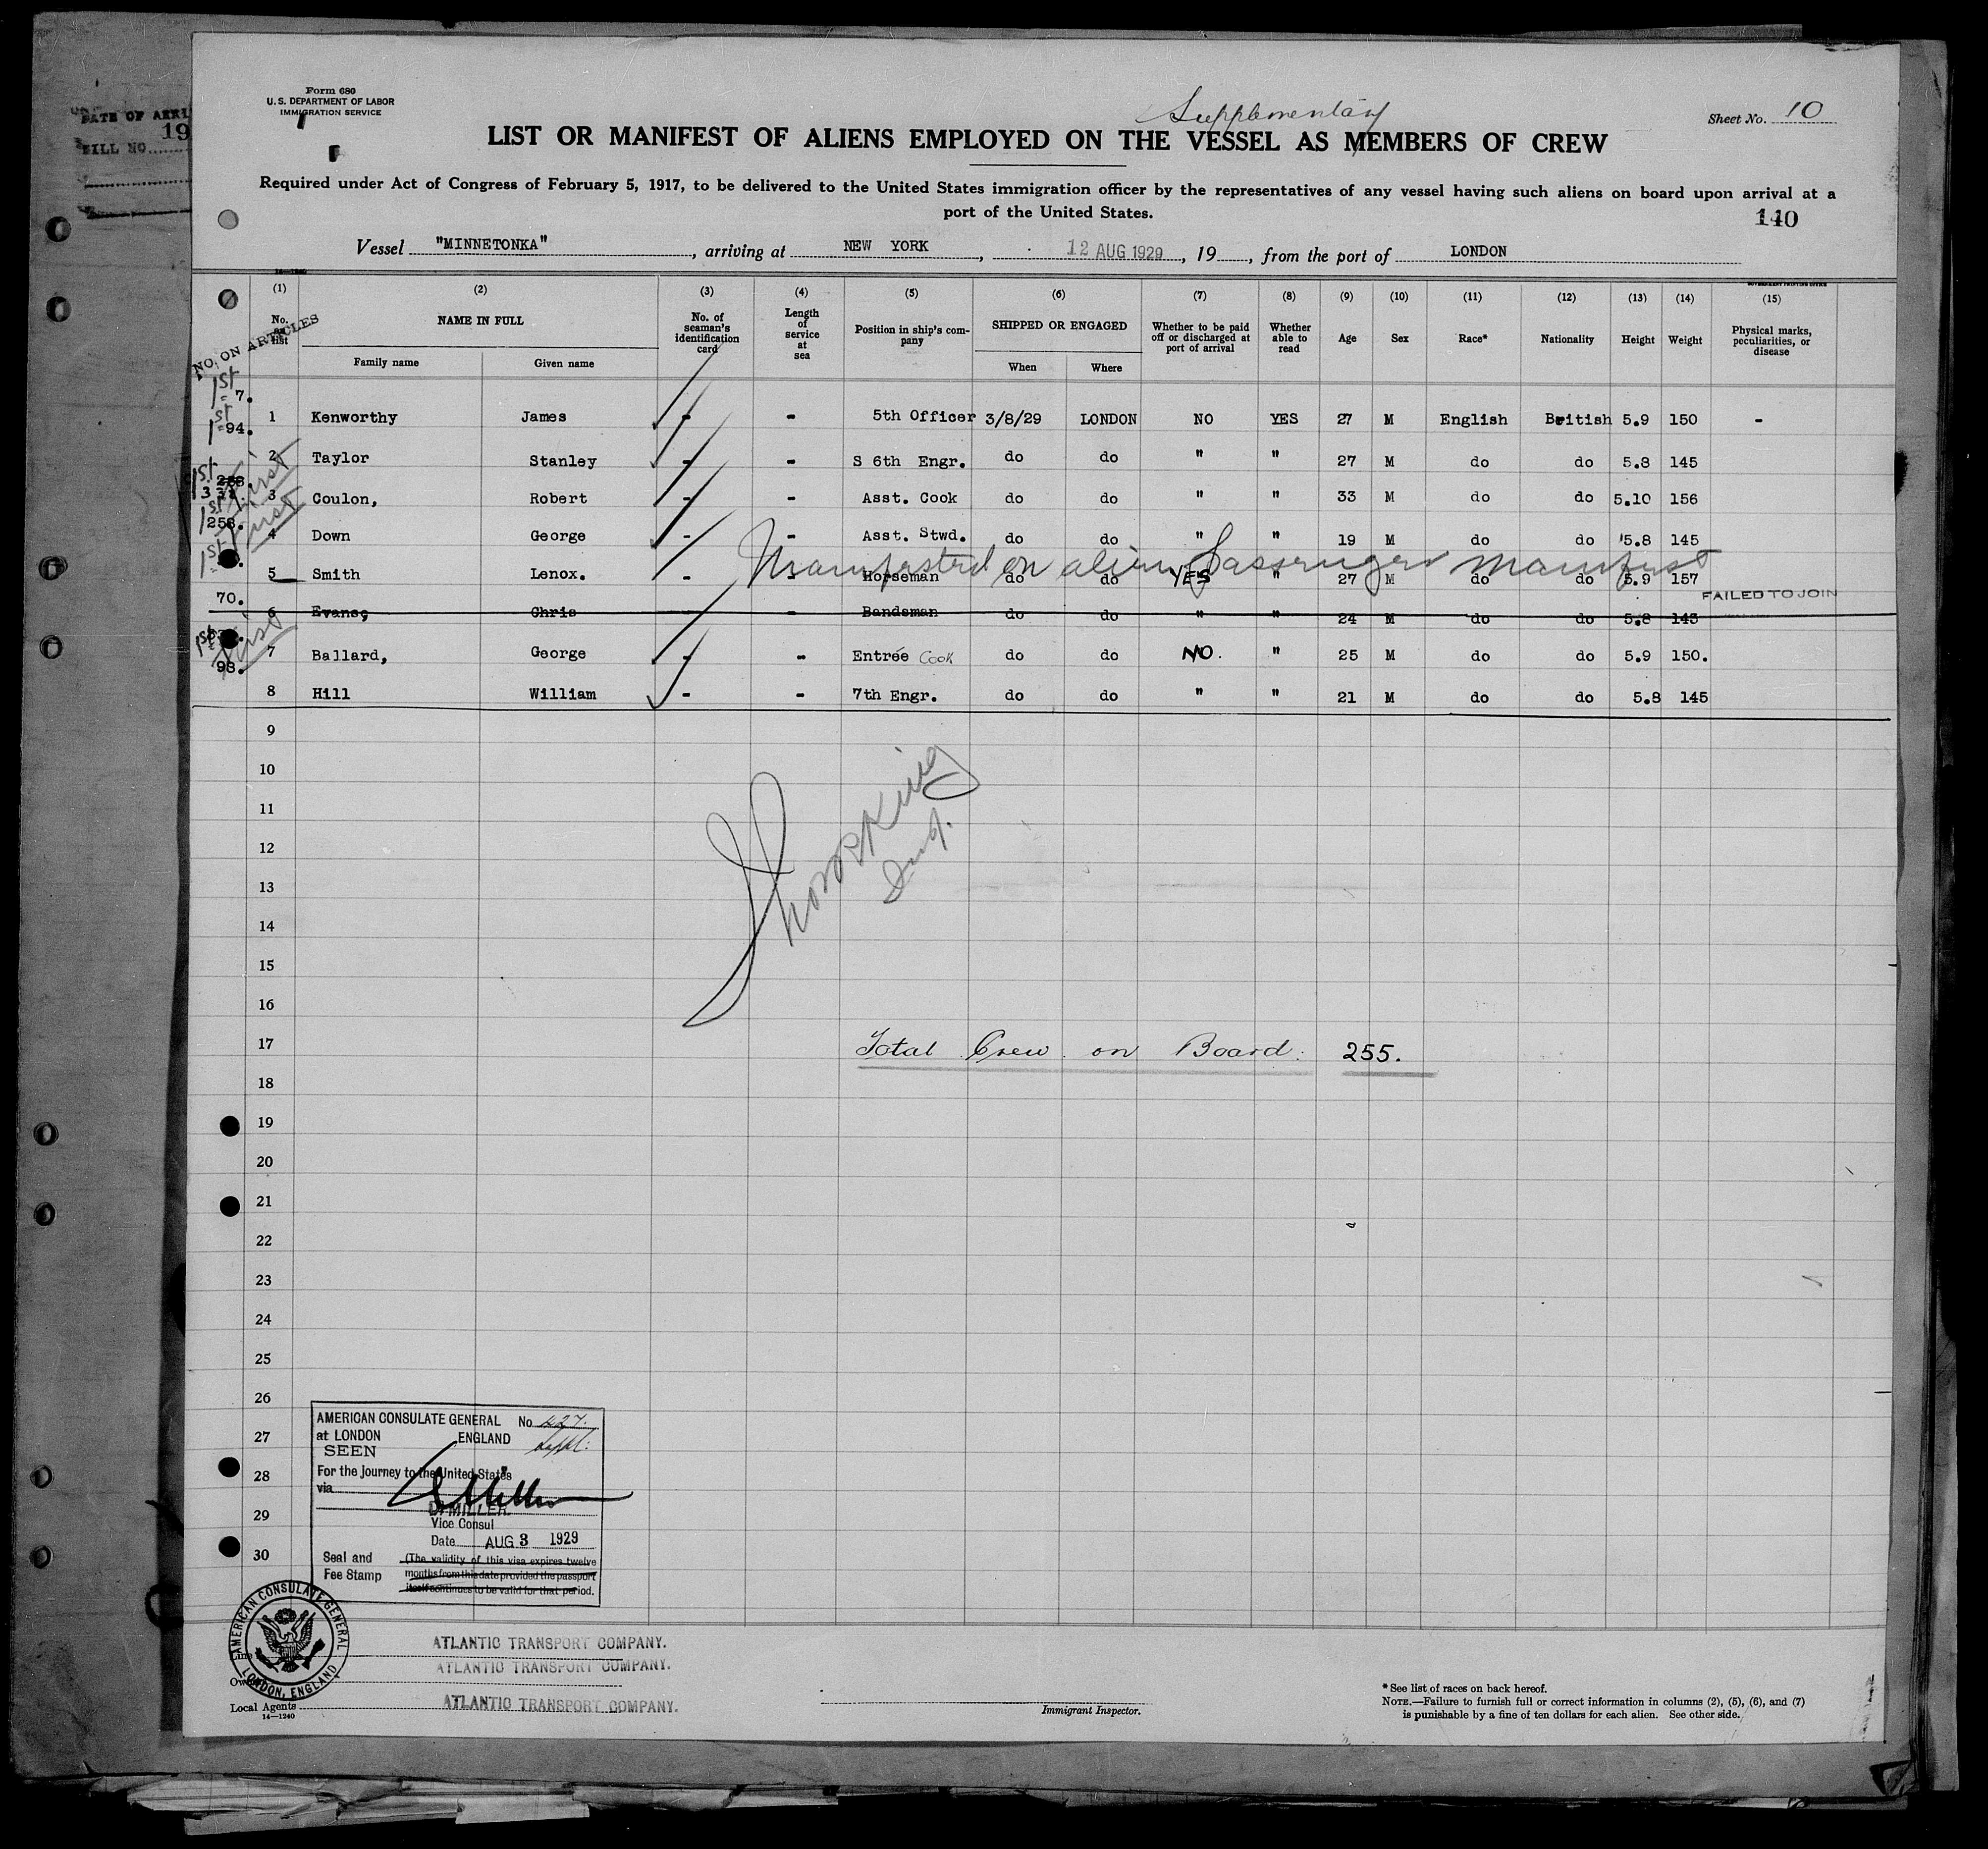 DATE OF ARRI
19
BILL NO
Form 680
U. S. DEPARTMENT OF LABOR
IMMIGRATION SERVICE
Supplementary
Sheet No. 10
LIST OR MANIFEST OF ALIENS EMPLOYED ON THE VESSEL AS MEMBERS OF CREW
Required under Act of Congress of February 5, 1917, to be delivered to the United States immigration officer by the representatives of any vessel having such aliens on board upon arrival at a
port of the United States.
140
Vessel "MINNETONKA", arriving at NEW YORK, 12 AUG 1929, 19, from the port of LONDON
GOVERNMENT PRINTING OFFICE
(1) (2) (3) (4) (5) (6) (7) (8) (9) (10) (11) (12) (13) (14) (15)
NO. ON ARTICLES
No. on list NAME IN FULL No. of seaman's identification card Length of service at sea Position in ship's company SHIPPED OR ENGAGED Whether to be paid off or discharged at port of arrival Whether able to read Age Sex Race* Nationality Height Weight Physical marks, peculiarities, or disease
Family name Given name When Where
1st 7.
1 Kenworthy James - - 5th Officer 3/8/29 LONDON NO YES 27 M English British 5.9 150 -
1st 94.
2 Taylor Stanley - - S 6th Engr. do do " " 27 M do do 5.8 145
1st first
3 Coulon, Robert - - Asst. Cook do do " " 33 M do do 5.10 156
1st 258. first
4 Down George - - Asst. Stwd. do do " " 19 M do do 5.8 145
1st
Manifested on alien passenger manifest
5 Smith Lenox. - - Horseman do do YES " 27 M do do 5.9 157
70.
FAILED TO JOIN
6 Evans, Chris - Bandsman do do " " 24 M do do 5.8 145
1st first
7 Ballard, George - - Entrée Cook do do NO. " 25 M do do 5.9 150.
98.
8 Hill William - - 7th Engr. do do " " 21 M do do 5.8 145
9
10
11
12
13
14
15
16
17 Total Crew on Board: 255.
18
19
20
21
22
23
24
25
26
27
28
29
30
AMERICAN CONSULATE GENERAL No 427.
at LONDON ENGLAND
SEEN
For the Journey to the United States
via
D. MILLER.
Vice Consul
Date AUG 3 1929
Seal and Fee Stamp
(The validity of this visa expires twelve
months from this date provided the passport
itself continues to be valid for that period.
AMERICAN CONSULATE GENERAL
LONDON, ENGLAND
Line ATLANTIC TRANSPORT COMPANY.
Owners ATLANTIC TRANSPORT COMPANY.
Local Agents ATLANTIC TRANSPORT COMPANY.
14—1240
Immigrant Inspector.
* See list of races on back hereof.
NOTE.—Failure to furnish full or correct information in columns (2), (5), (6), and (7)
is punishable by a fine of ten dollars for each alien. See other side.